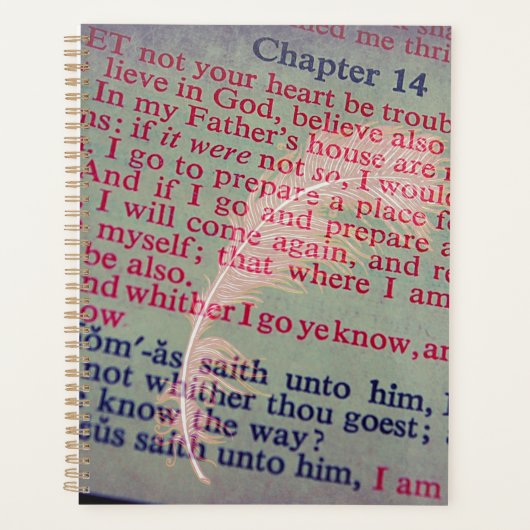 ned me thri
Chapter 14
ET not your heart be troub
lieve in God, believe also
In my Father's house are
ns: if it were not so, I would
I go to prepare a place fo
And if I go and prepare a
I will come again, and re
myself; that where I am
be also.
nd whither I go ye know, an
ow
ŏm′-ăs saith unto him,
not whither thou goest;
know the way?
ŭs saith unto him, I am